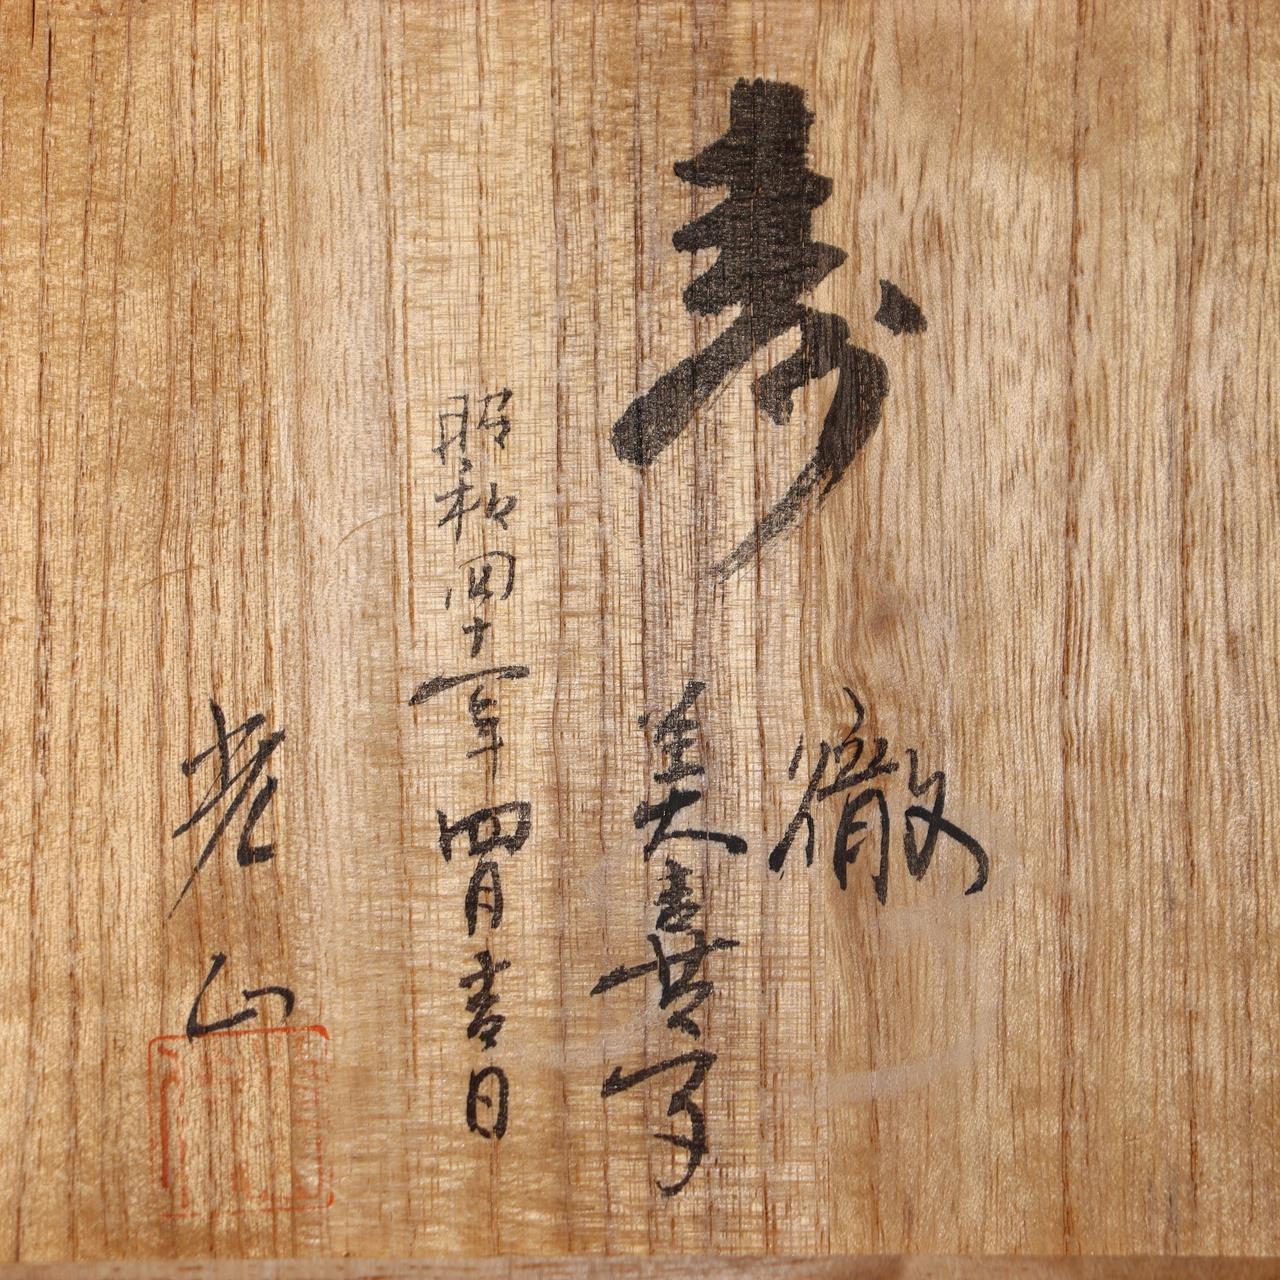 寿
徹
美喜子
昭和四十一年四月吉日
老山